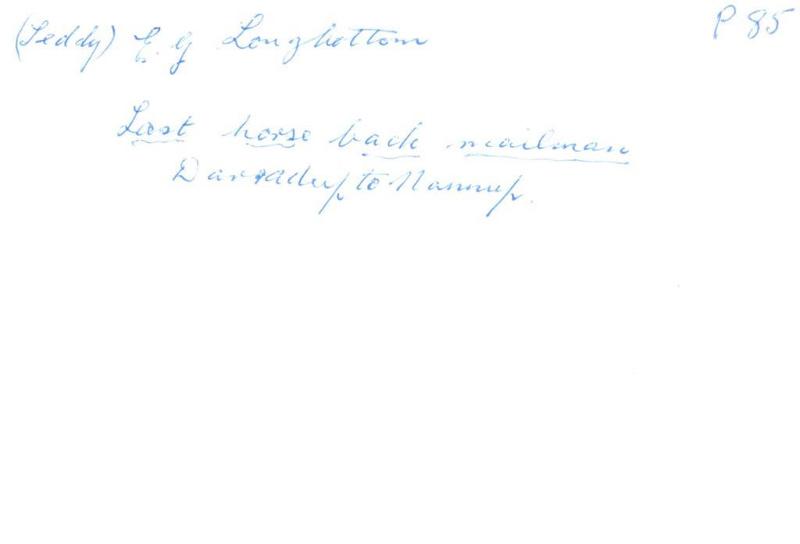 (Teddy) E. G Longbottom P 85
Last horse back mailman
Darradup to Nannup.